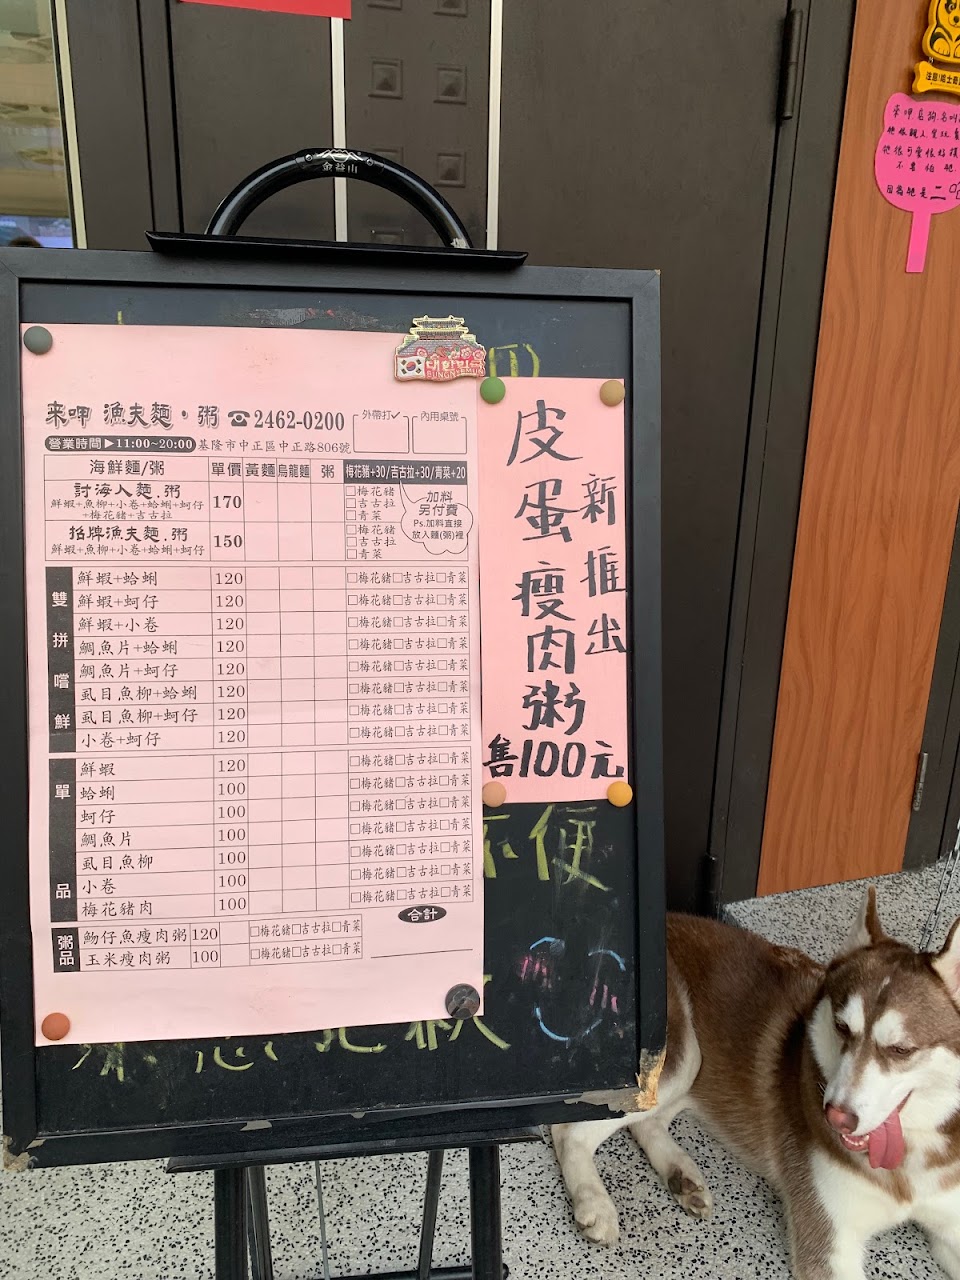 金益山
來呷 漁夫麵·粥 ☎2462-0200
外帶打✓
內用桌號
營業時間▶11:00~20:00 基隆市中正區中正路806號
海鮮麵/粥 單價 黃麵 烏龍麵 粥 梅花豬+30/吉古拉+30/青菜+20
討海人麵.粥 170 □梅花豬 □吉古拉 □青菜
鮮蝦+魚柳+小卷+蛤蜊+蚵仔
+梅花豬+吉古拉
招牌漁夫麵.粥 150 □梅花豬 □吉古拉 □青菜
鮮蝦+魚柳+小卷+蛤蜊+蚵仔
加料
另付費
Ps.加料直接
放入麵(粥)裡
雙拼嚐鮮
鮮蝦+蛤蜊 120 □梅花豬□吉古拉□青菜
鮮蝦+蚵仔 120 □梅花豬□吉古拉□青菜
鮮蝦+小卷 120 □梅花豬□吉古拉□青菜
鯛魚片+蛤蜊 120 □梅花豬□吉古拉□青菜
鯛魚片+蚵仔 120 □梅花豬□吉古拉□青菜
虱目魚柳+蛤蜊 120 □梅花豬□吉古拉□青菜
虱目魚柳+蚵仔 120 □梅花豬□吉古拉□青菜
小卷+蚵仔 120 □梅花豬□吉古拉□青菜
單品
鮮蝦 120 □梅花豬□吉古拉□青菜
蛤蜊 100 □梅花豬□吉古拉□青菜
蚵仔 100 □梅花豬□吉古拉□青菜
鯛魚片 100 □梅花豬□吉古拉□青菜
虱目魚柳 100 □梅花豬□吉古拉□青菜
小卷 100 □梅花豬□吉古拉□青菜
梅花豬肉 100 □梅花豬□吉古拉□青菜
合計
粥品
魩仔魚瘦肉粥 120 □梅花豬□吉古拉□青菜
玉米瘦肉粥 100 □梅花豬□吉古拉□青菜
대한민국
新推出
皮蛋瘦肉粥
售100元
便
來呷店狗名叫
不要怕牠
因為牠是二